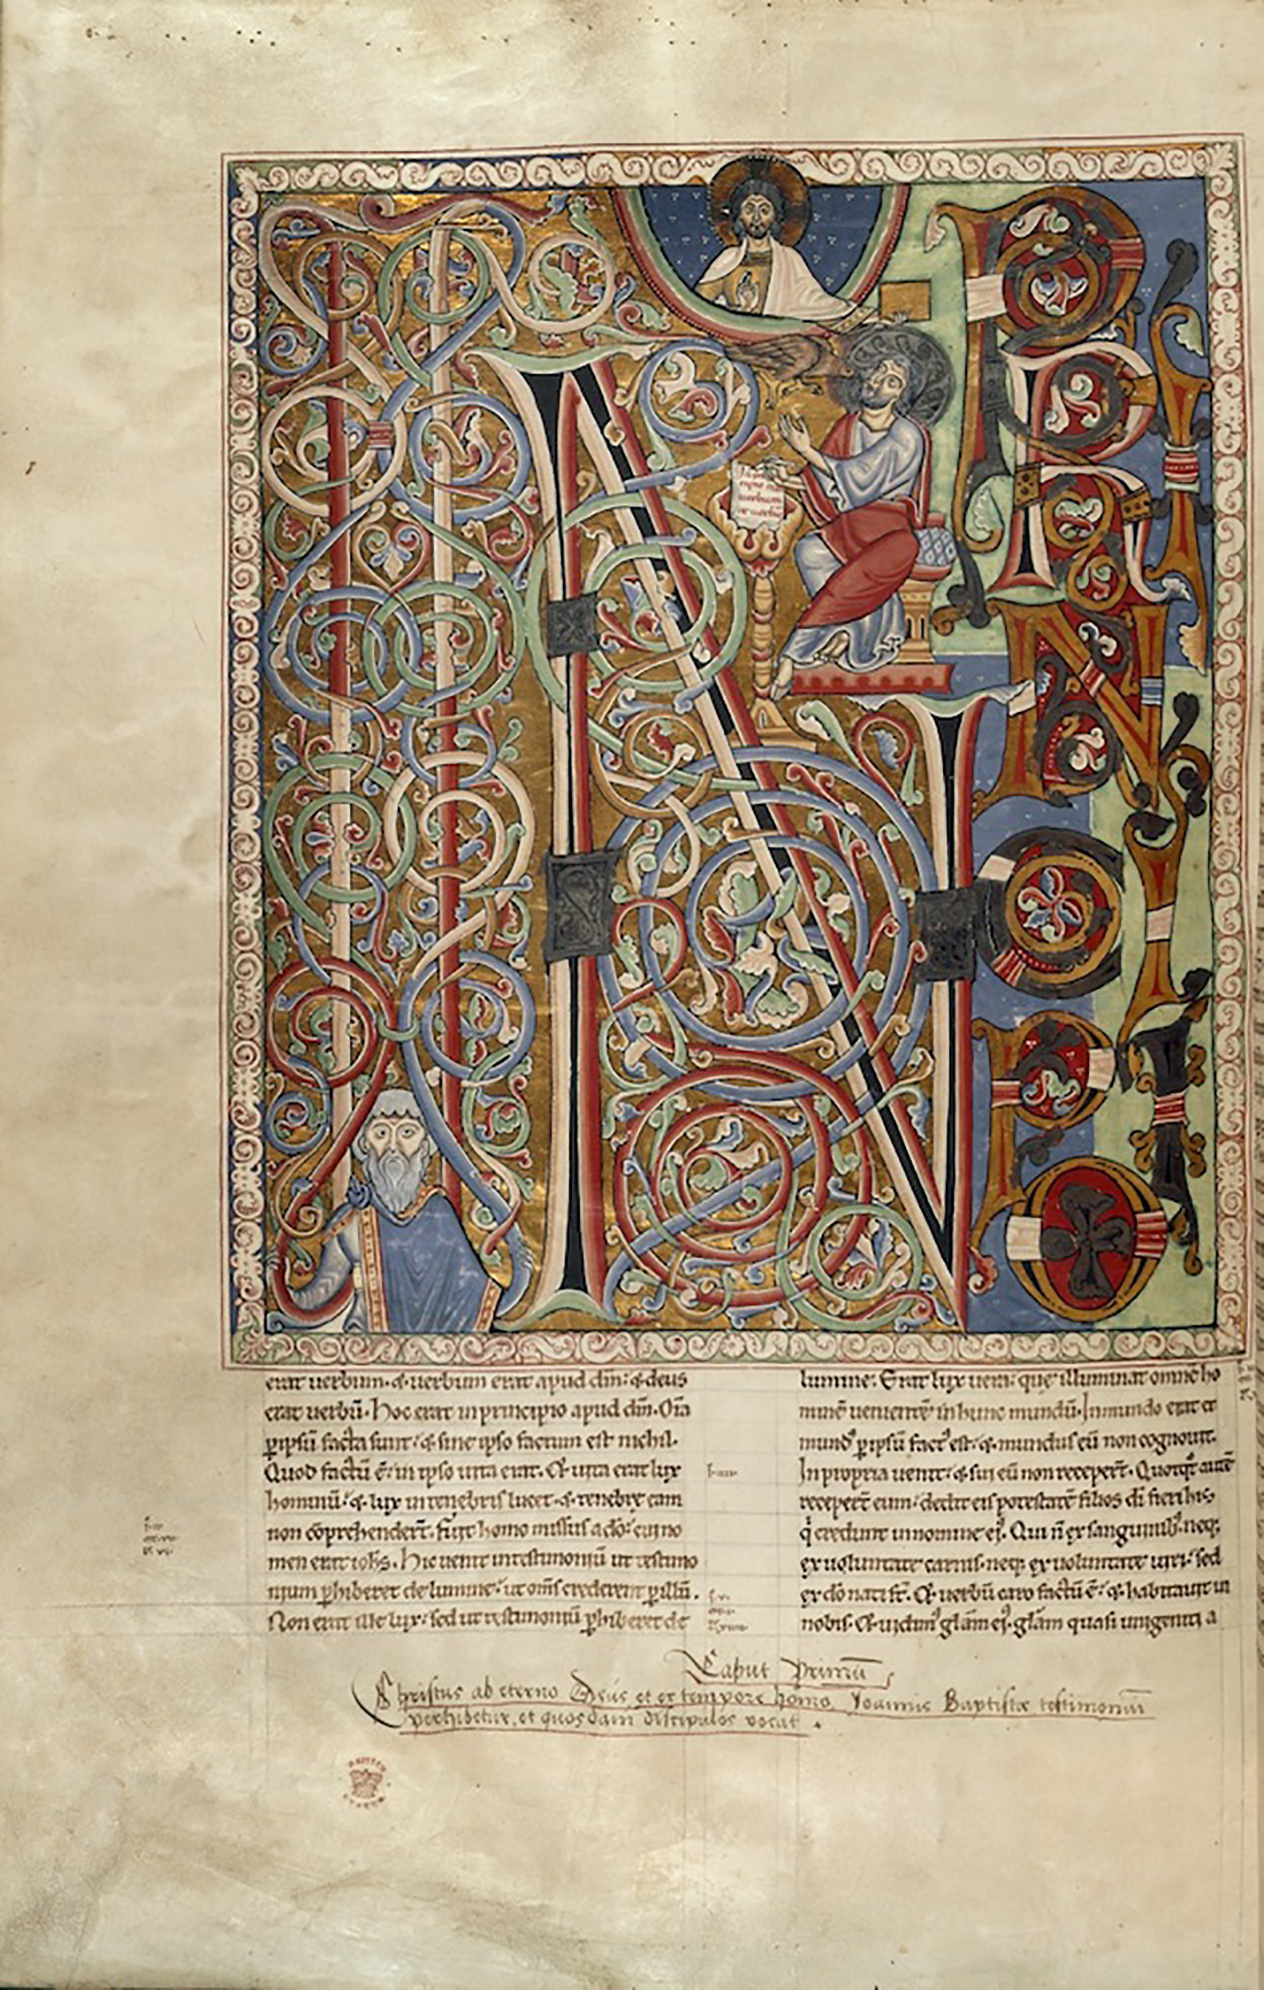 IN
PRINCIPIO
erat uerbum. & uerbum erat apud dm̄: & deus
erat uerbū. Hoc erat in principio apud dm̄. Om̄a
p ipsū facta sunt: & sine ipso factum est nichil.
Quod factū ē: in ipso uita erat. Et uita erat lux
hominū: & lux in tenebris lucet. & tenebre eam
non cōprehenderт̄. Fuit homo missus a dō: cui no
men erat ioh̄s. Hic uenit in testimoniū ut testimo
nium phiberet de lumine: ut om̄s crederent p illū.
Non erat ille lux: sed ut testimoniū phiberet de
lumine. Erat lux uera: que illuminat omnē ho
minē uenientē in hunc mundū. In mundo erat et
mund' p ipsū fact' est: & mundus eū non cognouit.
In propria uenit: & sui eū non recepert̄. Quotqt' autē
recepert̄ eum: dedit eis potestatē filios dī fieri his
q̇ credunt in nomine ej'. Qui n̄ ex sanguinib'. neq;
ex uoluntate carnis. neq; ex uoluntate uiri: sed
ex dō nati st̄. Et uerbū caro factū ē: & habitauit in
nobis. Et uidim' gl̄am ej'. gl̄am quasi unigeniti a
Caput Primū
Christus ab eterno Deus et ex tempore homo Joannis Baptistæ testimoniū
perhibetur, et quosdam discipulos vocat.